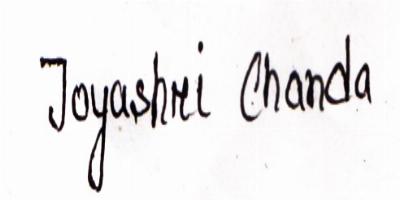 Joyashri Chanda